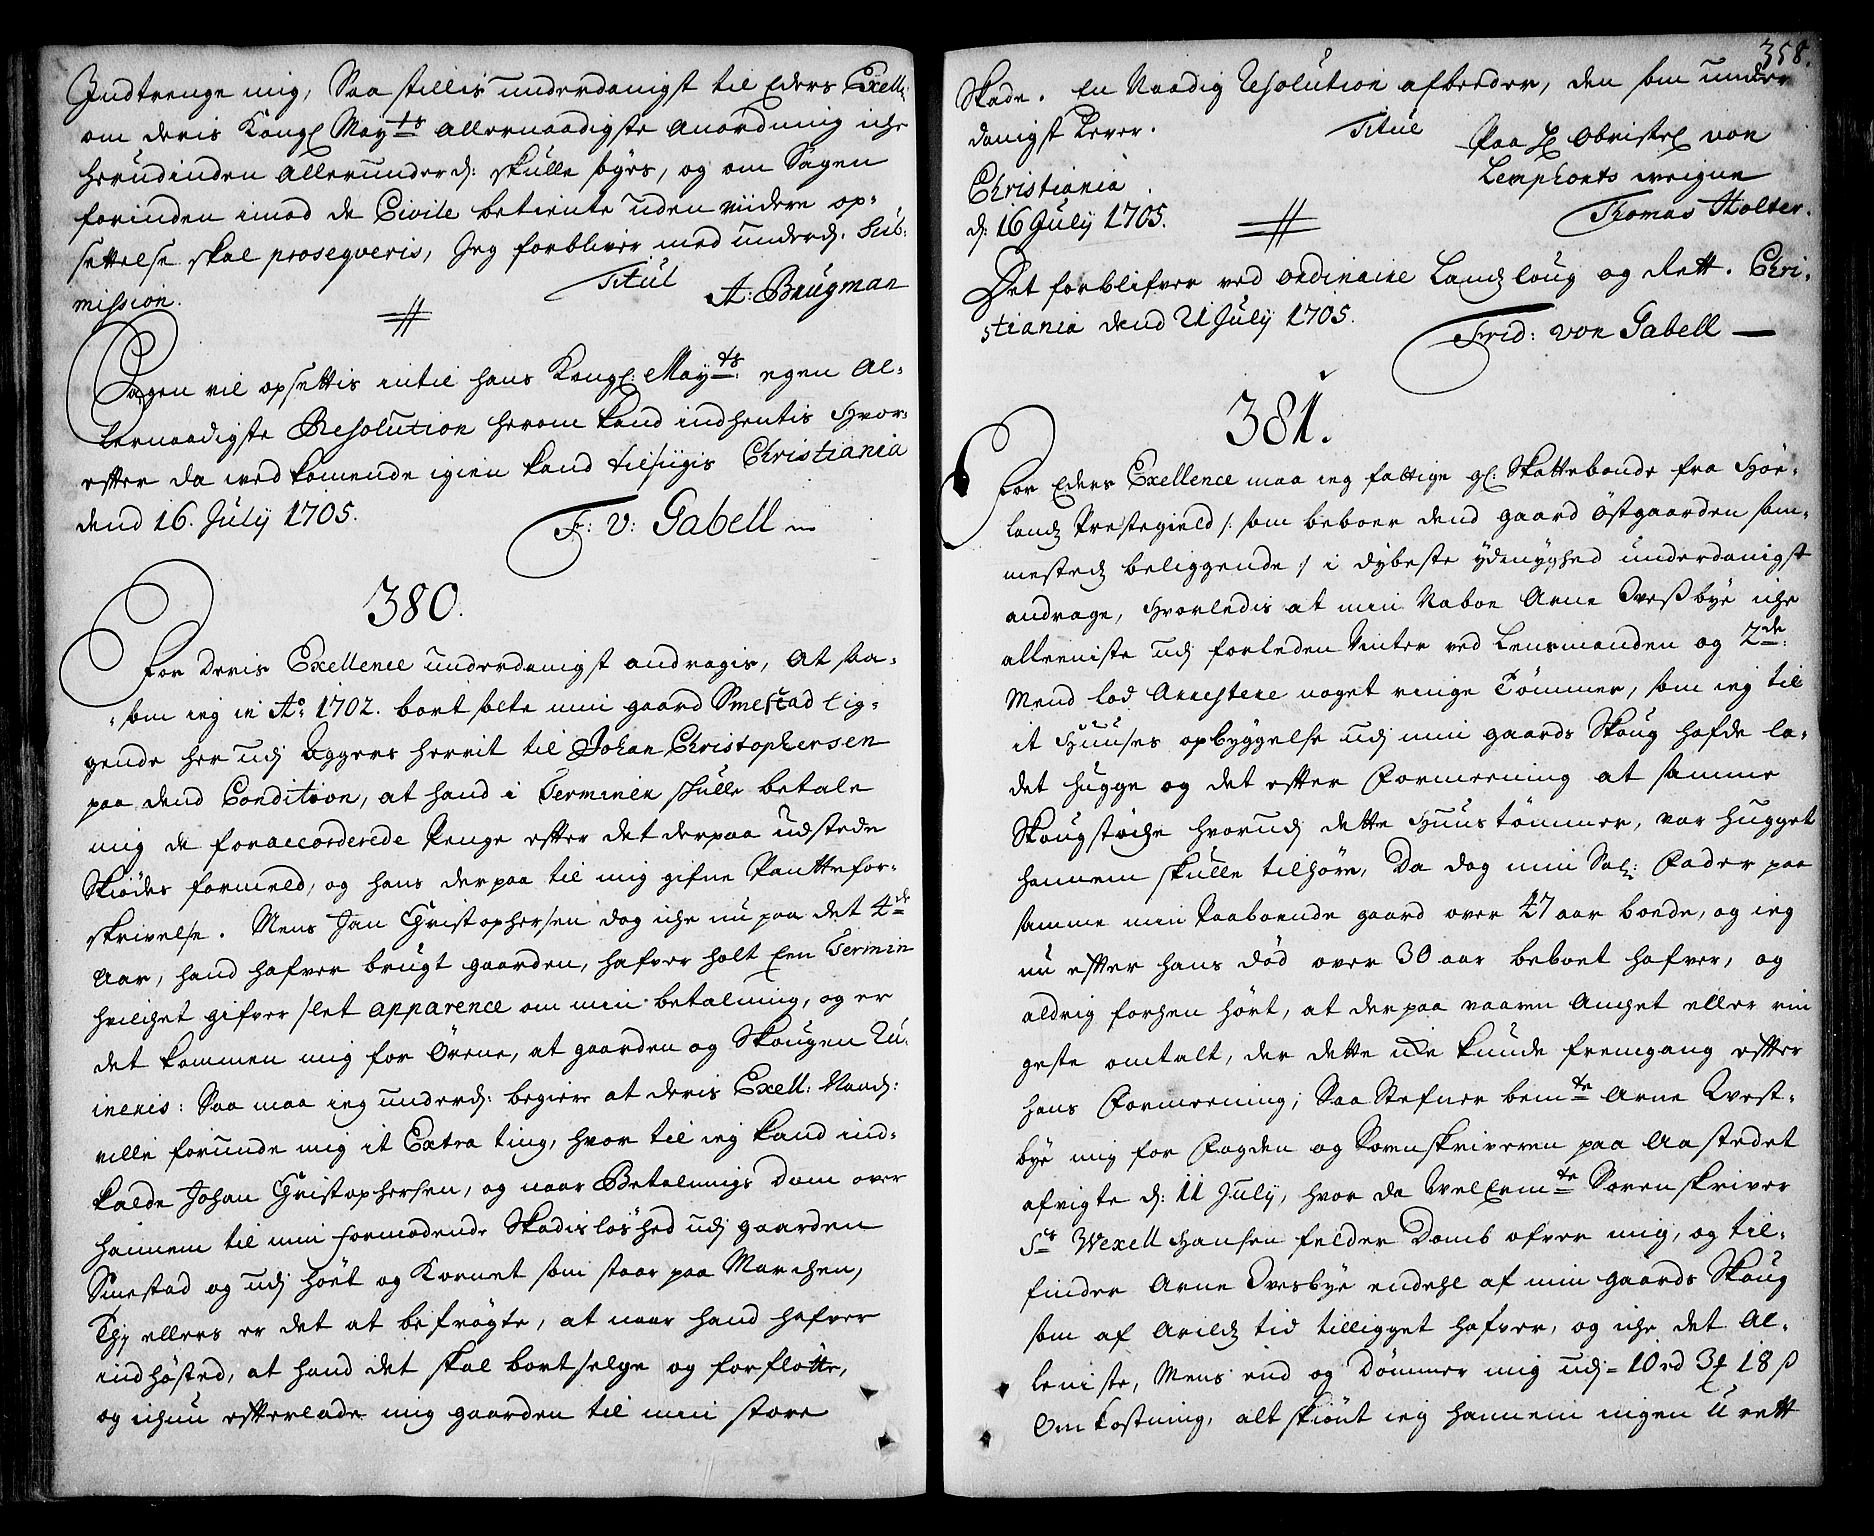 Indtrenge mig, Saa stillis underdanigst til Eders Exell:
om deris Kongl May<sup>ts</sup> allernaadigste anordning iche
herudinden allerunderd: skulle søges, og om Sagen
forinden imod de Civile betiente uden viidere op-
settelse skal proseqveris, Jeg forbliver med underd. Sub-
mission. Titul A: Brugman
Sagen vil opsettis intil hans Kongl: May<sup>ts</sup>: egen al-
lernaadigste Resolution herom kand indhentis hvor-
efter da vedkomende igien kand tilsiigis Christiania
dend 16. July 1705. F: V: Gabell
380.
For Deris Exellence underdanigst andragis, at saa-
som ieg in A<sup>o</sup> 1702. bort solte min gaard Smestad lig-
gende her udj Aggers herrit til Johan Christophersen
paa dend Condition, at hand i Terminer skulle betale
mig de foraccorderede Penge efter det derpaa udstede
Skiødes formeld, og hans derpaa til mig gifne Pantefor-
skrivelse. Mens Jan Christophersen dog iche nu paa det 4<sup>de</sup>
Aar, hand hafver brugt gaarden, hafver holt Een Termin
hvilchet gifver slet apparence om min betalning, og er
det kommen mig for Ørene, at gaarden og Skougen Ru-
ineris: Saa maa ieg underd: begiere at deris Exell: Naad:
ville forunde mig it Extra ting, hvor til ieg kand ind-
kalde Johan Christophersen, og naar Betalnings Dom over
hannem til min formodende Skadisløshed udj gaarden
Smestad og udj høet og Kornet som staar paa Marchen,
Thj ellers er det at befrøgte, at naar hand hafver
indhøsted, at hand det skal bortselge og forflötte,
og ichun efterlade mig gaarden til min store
358.
Skade. En Naadig Resolution afbeder, den som under
danigst lever. Titul Paa H Obristel von
Christiania Lemphonts weigne
d: 16 July 1705. Thomas Stolter.
Det forblifver ved ordinaire Landloug og Rett. Chri-
stiania dend 21 July 1705.
Frid: von Gabell
381.
For Eders Exellence maa ieg fattige gl: Skattebonde fra Høe-
land Prestegield /: som beboer dend gaard Östgaarden sam-
mested beliggende :/ i dybeste ydmyghed underdanigst
andrage, hvorledis at min Naboe Arne Tveßbye iche
alleeniste udj forleden Vinter ved Lensmanden og 2<sup>de</sup>:
Mend lod Arrestere noget ringe Tömmer, som ieg til
it Huuses opbyggelse udj min gaards Skoug hafde la-
det hugge og det efter Formeening at samme
Skougstøche hvorudj dette Huustömmer, var hugget
hannem skulle tilhöre, Da dog min Sal: Fader paa
samme min Paaboende gaard over 47 aar boede, og ieg
nu efter hans död over 30 aar beboet hafver, og
aldrig forhen hört, at derpaa vaaren Anchet eller rin
geste omtalt, der dette iche kunde fremgang efter
hans Formeening; Saa Stefner bem<sup>te</sup> Arne Tvest-
bye mig for Fogden og Sorenskriveren paa Aastedet
afvigte d: 11 July, hvor da Welbem<sup>te</sup> Sorenskriver
S<sup>r</sup> Wexell Hansen felder Domb ofver mig, og til-
finder Arne Tvesbye endehl af min gaards Skoug
som af Arild tid tilligget hafver, og iche det al-
leniste, Mens end og Dömmer mig udj 10 rd 3 # 18 ß
Omkostning, alt skiönt ieg hannem ingen Urett